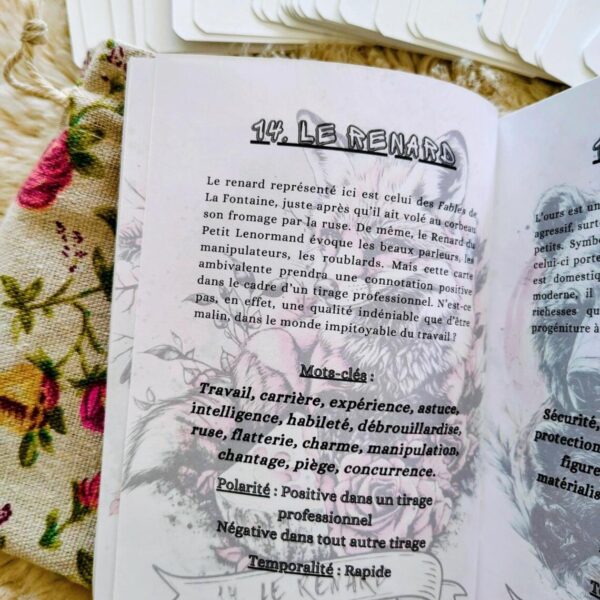 14. LE RENARD
Le renard représenté ici est celui des Fables de
La Fontaine, juste après qu'il ait volé au corbeau
son fromage par la ruse. De même, le Renard du
Petit Lenormand évoque les beaux parleurs, les
manipulateurs, les roublards. Mais cette carte
ambivalente prendra une connotation positive
dans le cadre d'un tirage professionnel. N'est-ce
pas, en effet, une qualité indéniable que d'être
malin, dans le monde impitoyable du travail ?
Mots-clés :
Travail, carrière, expérience, astuce,
intelligence, habileté, débrouillardise,
ruse, flatterie, charme, manipulation,
chantage, piège, concurrence.
Polarité : Positive dans un tirage
professionnel
Négative dans tout autre tirage
Temporalité : Rapide
14 LE RENARD
L'ours est un
agressif, surt
petits. Symb
celui-ci porte
est domestiq
moderne, il
richesses qu
progéniture à
Sécurité,
protection
figure
matérialis